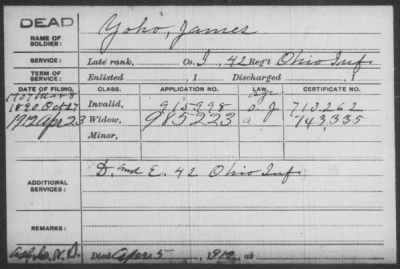 DEAD
NAME OF SOLDIER: Yoho, James
SERVICE: Late rank, Co. I, 42 Reg't Ohio Inf.
TERM OF SERVICE: Enlisted , 1 Discharged , 1
DATE OF FILING. CLASS. APPLICATION NO. LAW. CERTIFICATE NO.
1907 Mar 8 age
1890 Oct 27 Invalid, 915998 o J 713.262
1912 Apr 23 Widow, 985223 a 743,335
Minor,
ADDITIONAL SERVICES: D. and E. 42 Ohio Inf.
REMARKS:
Died Apr. 5, 1912, at